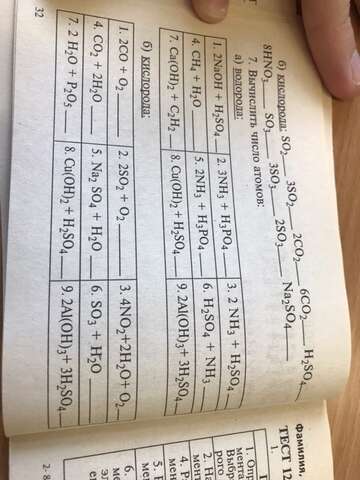 б) кислорода: SO₂____ 3SO₂____ 2CO₂____ 6CO₂____ H₂SO₄____
8HNO₃____ SO₃____ 3SO₃____ 2SO₃____ Na₂SO₄____
7. Вычислить число атомов:
а) водорода:
1. 2NaOH + H₂SO₄____ 2. 3NH₃ + H₃PO₄____ 3. 2 NH₃ + H₂SO₄____
4. CH₄ + H₂O____ 5. 2NH₃ + H₃PO₄____ 6. H₂SO₄ + NH₃____
7. Ca(OH)₂ + C₂H₂____ 8. Cu(OH)₂ + H₂SO₄____ 9. 2Al(OH)₃+ 3H₂SO₄____
б) кислорода:
1. 2CO + O₂____ 2. 2SO₂ + O₂____ 3. 4NO₂+2H₂O+ O₂____
4. CO₂ + 2H₂O____ 5. Na₂ SO₄ + H₂O____ 6. SO₃ + H₂O____
7. 2 H₂O + P₂O₅____ 8. Cu(OH)₂ + H₂SO₄____ 9. 2Al(OH)₃+ 3H₂SO₄____
32
Фамилия,
ТЕСТ 12
1.
1. Опр
мента
Выбра
рого
2. На
мент
4. Р
мен
5.
мен
6.
ме
эл
2- 8